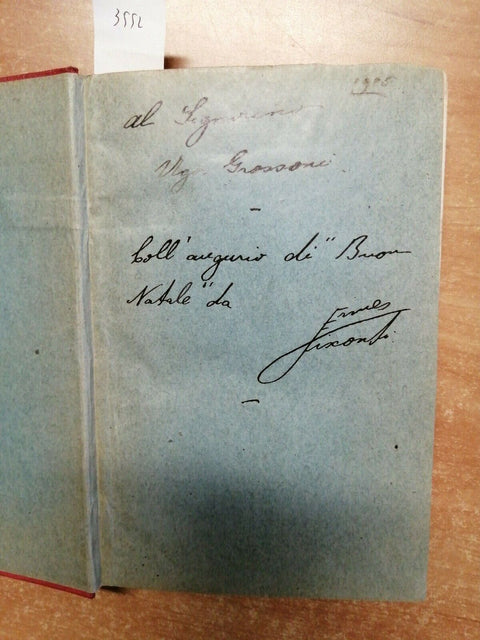 3552
1905
al Signorino
Ugo Grossoni
-
Coll'augurio di "Buon
Natale" da
Ermes
Visconti
-